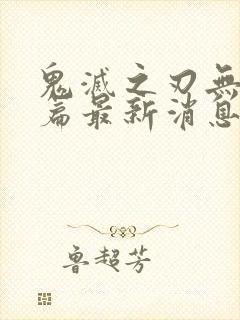 鬼滅之刃無
篇最新消息
魯超芳